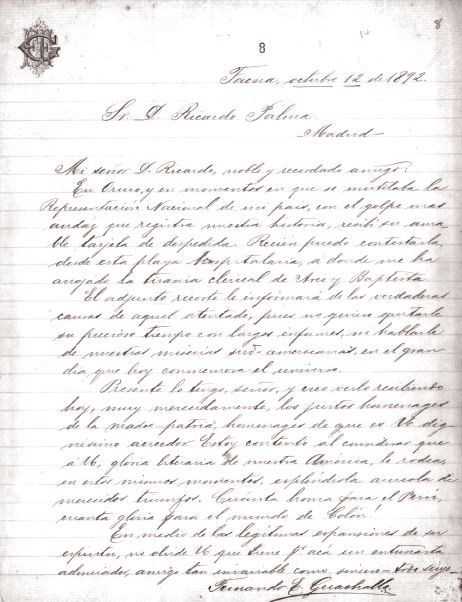 8
14
8
Tacna, octubre 12 de 1892.
Sr. D. Ricardo Palma.
Madrid—
Mi señor D. Ricardo, noble y recordado amigo:
En Oruro, y en momentos en que se mutilaba la
Representación Nacional de mi país, con el golpe mas
audáz que registra nuestra historia, recibí su ama
ble tarjeta de despedida. Recién puedo contestarla,
desde esta playa hospitalaria, a donde me ha
arrojado la tirania clerical de Arce y Baptista
El adjunto recorte le informará de las verdaderas
causas de aquel atentado, pues no quiero quitarle
su precioso tiempo con largos informes, ni hablarle
de nuestras miserias sud-americanas, en el gran
dia que hoy conmemora el universo.
Presente lo tengo, señor, y creo verlo recibiendo
hoy, muy merecidamente, los justos homenages
de la madre patria, homenages de que es U. dig
nisimo acreedor. Estoy contento al considerar que
a U., gloria literaria de nuestra América, le rodea,
en estos mismos momentos, espléndida aureola de
merecidos triunfos. Cuánta honra para el Perú,
cuanta gloria para el mundo de Colón!
En medio de las legítimas expansiones de su
espíritu, no olvide U. que tiene pr. acá un entusiasta
admirador, amigo tan invariable como sincero—
Fernando E. Guachalla